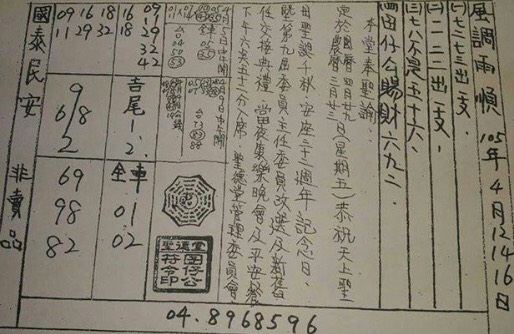 風調雨順 105年4月12 14 16日
(一)七二七三出一支、
(二)一二二三出一支、
(三)七八不是五十六、
(四)囝仔公賜財六九二.
本堂奉聖諭:
茲於國曆四月廿九日(星期五)恭祝天上聖
農曆三月廿三日
母聖誕千秋、安座三十二週年記念日、
暨第九屆委員主任委員改選及新舊
任交接典禮、當夜康樂晚會及平安餐
下午六点五十分入席 聖德堂管理委員會
聖德堂
囝仔公
符令印
09 16 18
11 29 32
16 09
18 11
29
32
42
9
6/8
2
吉尾
1、2、
69
98
82
全車
01
02
國泰民安
非賣品
04.8968596